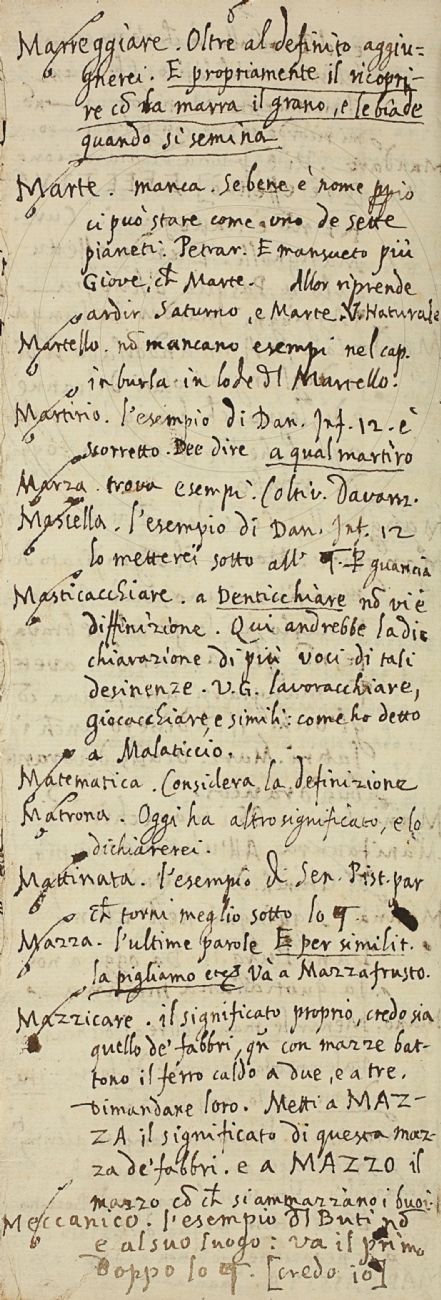 Marreggiare. Oltre al definito aggiu=
gnerei. E propriamente il ricopri-
re cō la marra il grano, e le biade
quando si semina
Marte. manca. Sebene è nome ꝓprio
ci può stare come uno de sette
pianeti. Petrar. E mansueto più
Giove, ch̄ Marte. Allor riprende
ardir Saturno, e Marte. V. Naturale
Martello. nō mancano esempi nel cap.
in burla in lode dl Martello.
Martirio. l'esempio di Dan. Inf. 12. è
scorretto. Dee dire a qual martiro
Marza. trova esempi. Coltiv. Davanz.
Mascella. l'esempio di Dan. Inf. 12
lo metterei sotto all' guancia
Masticacchiare. a Denticchiare nō vi è
diffinizione. Qui andrebbe la di-
chiarazione di più voci di tali
desinenze. V.G. lavoracchiare,
giocacchiare, e simili: come ho detto
a Malaticcio.
Matematica. Considera la definizione
Matrona. Oggi ha altro significato, e lo
dichiarerei.
Mattinata. l'esempio di Sen. Pist. par
ch̄ torni meglio sotto lo
Mazza. l'ultime parole E per similit.
la pigliamo etc va a Mazzafrusto.
Mazzicare. il significato proprio, credo sia
quello de' fabbri, qn̄ con mazze bat-
tono il ferro caldo a due, e a tre.
Dimandane loro. Metti a MAZ-
ZA il significato di questa maz-
za de' fabbri. e a MAZZO il
mazzo cō ch̄ si ammazzano i buoi.
Meccanico. l'esempio dl Buti nō
e al suo luogo: va il primo
Doppo lo [credo io]